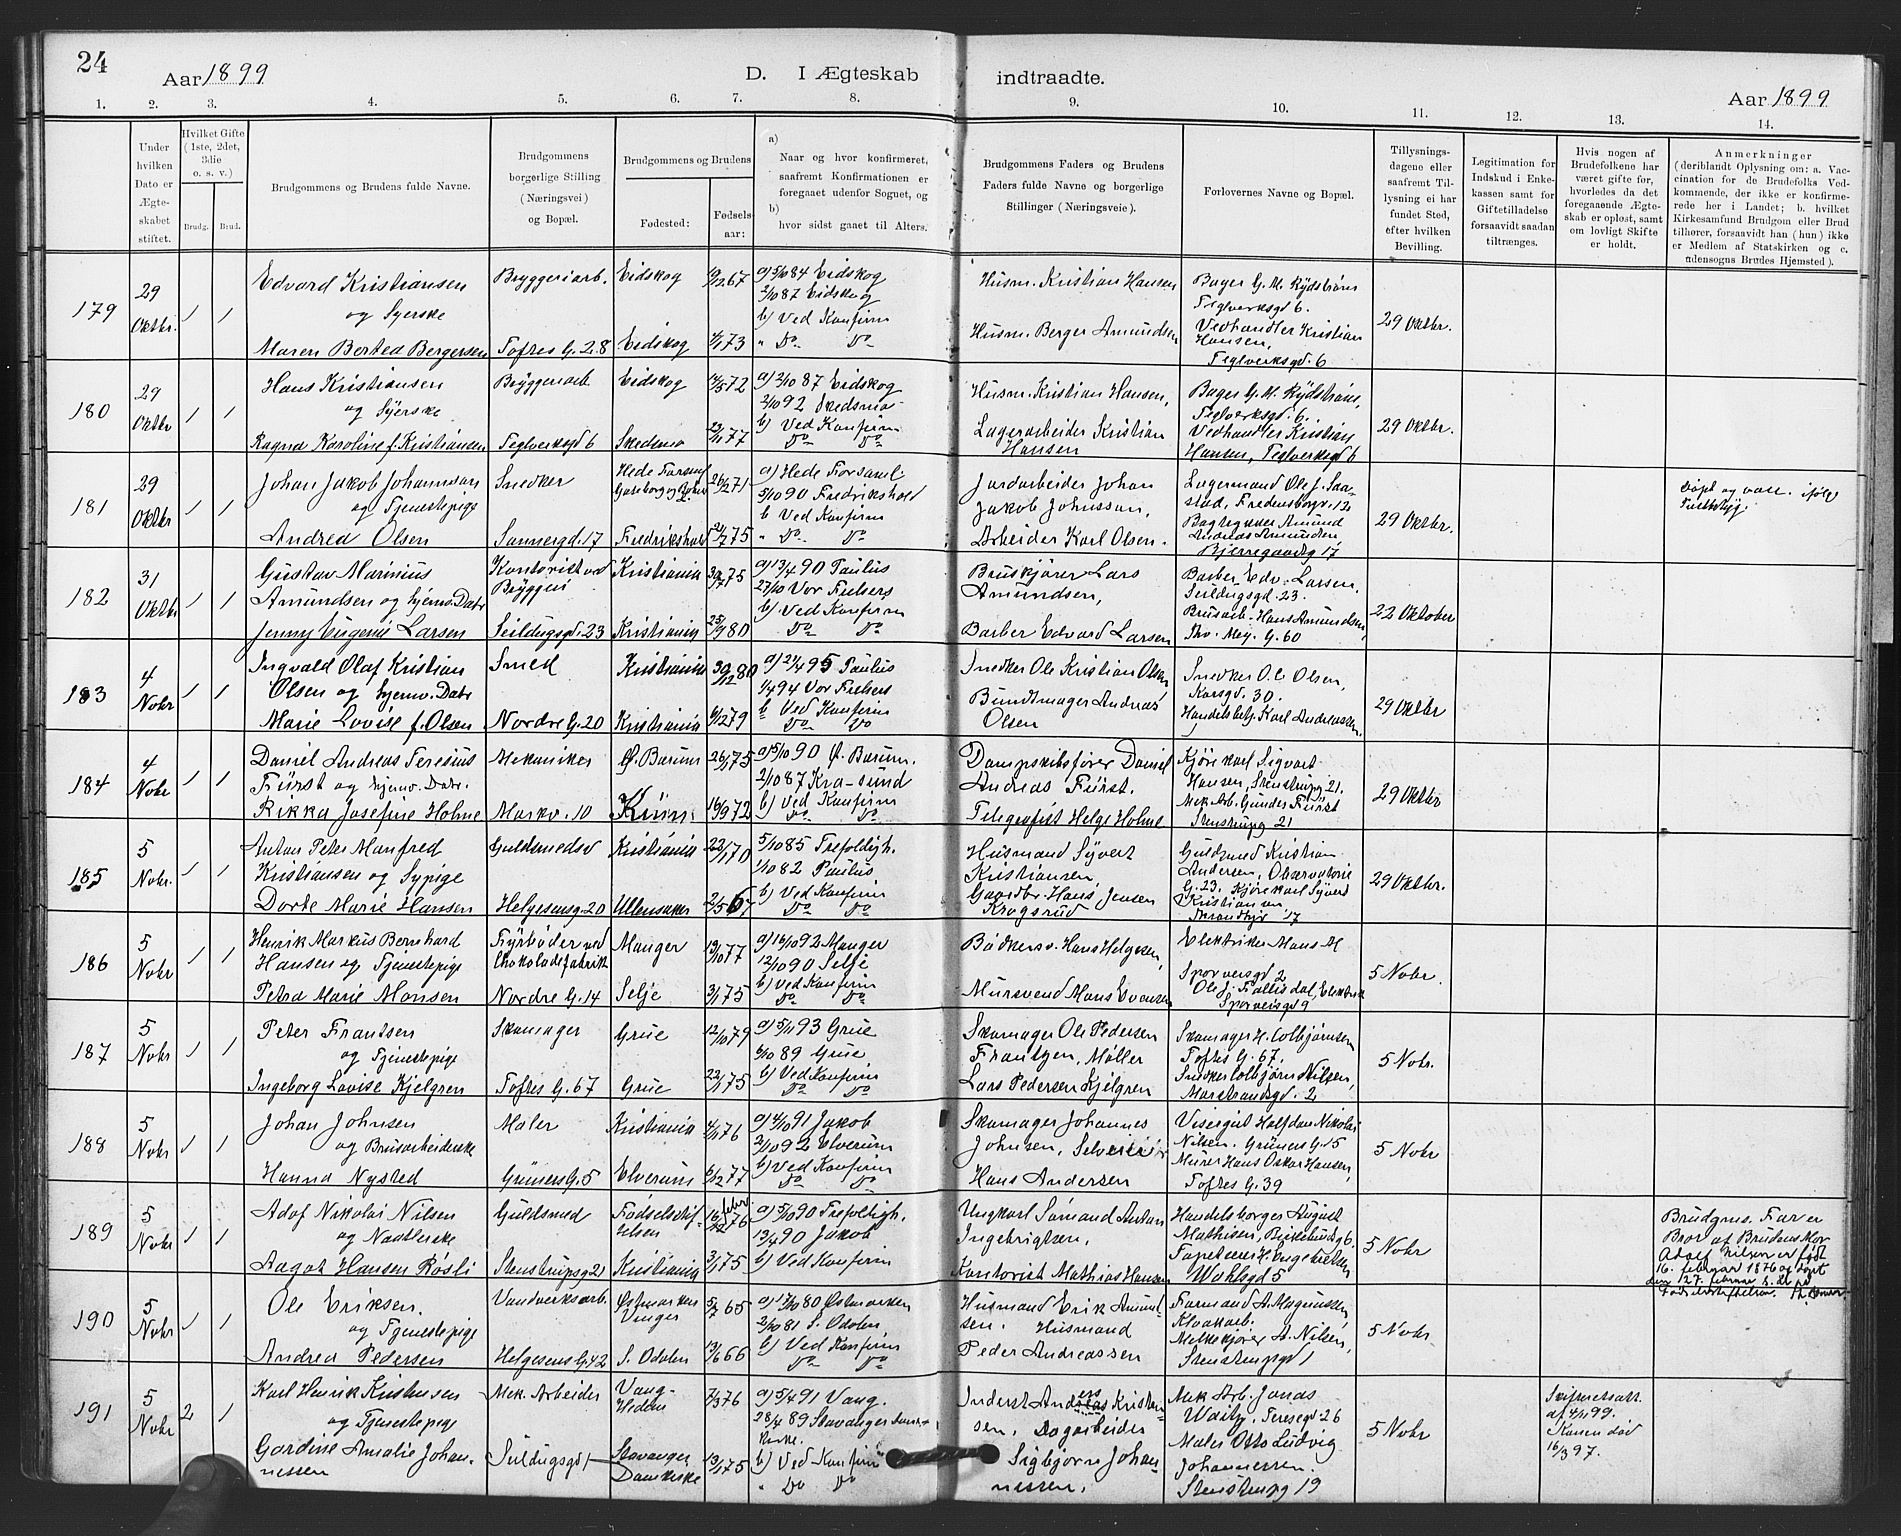 24
Aar 1899
D. I Ægteskab indtraadte.
Aar 1899
1. 2. 3. 4. 5. 6. 7. 8. 9. 10. 11. 12. 13. 14.
Under hvilken Dato er Ægteskabet stiftet.
Hvilket Gifte (1ste, 2det, 3die o. s. v.)
Brudg. Brud.
Brudgommens og Brudens fulde Navne.
Brudgommens borgerlige Stilling (Næringsvei) og Bopæl.
Brudgommens og Brudens
Fødested:
Fødselsaar:
a) Naar og hvor konfirmeret, saafremt Konfirmationen er foregaaet udenfor Sognet, og
b) hvor sidst gaaet til Alters.
Brudgommens Faders og Brudens Faders fulde Navne og borgerlige Stillinger (Næringsveie).
Forlovernes Navne og Bopæl.
Tillysningsdagene eller saafremt Tillysning ei har fundet Sted, efter hvilken Bevilling.
Legitimation for Indskud i Enkekassen samt for Giftetilladelse forsaavidt saadan tiltrænges.
Hvis nogen af Brudefolkene har været gifte før, hvorledes da det foregaaende Ægteskab er opløst, samt om lovligt Skifte er holdt.
Anmerkninger (deriblandt Oplysning om: a. Vaccination for de Brudefolks Vedkommende, der ikke er konfirmerede her i Landet; b. hvilket Kirkesamfund Brudgom eller Brud tilhører, forsaavidt han (hun) ikke er Medlem af Statskirken og c. udensogns Brudes Hjemsted).
179
29 Oktbr.
1 1
Edvard Kristiansen
og Syerske
Maren Bertea Bergersen
Bryggeriarb.
Toftes G. 28
Eidskog
Eidskog
19/12 67
4/1 73
a) 5/10 84 Eidskog
2/10 87 Eidskog
b) Ved Konfirm
" Do Do
Husm. Kristian Hansen
Husm. Berger Amundsen
Bager G. M. Rydstrøm
Teglverksgd 6.
Vedhandler Kristian
Hansen,
Teglverksgd. 6
29 Oktbr.
180
29 Oktbr
1 1
Hans Kristiansen
og Syerske
Ragna Karoline f. Kristiansen
Bryggeriarb
Teglverksgd 6
Eidskog
Skedsmo
14/5 72
23/11 77
a) 2/10 87 Eidskog
2/10 92 Skedsmo
b) Ved Konfirm
Do Do
Husm. Kristian Hansen,
Lagerarbeider Kristian
Hansen
Bager G. M. Rydstrøm,
Teglverksgd. 6.
Vedhandler Kristian
Hansen, Teglverksgd 6
29 Oktbr.
181
29 Oktbr
1 1
Johan Jakob Johannson
og Tjenestepige
Andrea Olsen
Snedker
Sannergd. 17
Hede Forsaml
Fredrikshald
26/2 71
24/7 75
a) Hede Forsaml
5/10 90 Fredrikshald
b Ved Konfirm
" Do Do
Jordarbeider Johan
Jakob Johnsson,
Arbeider Karl Olsen.
Lagermand Ole J. Saastad, Fredensborgv. 12
Amund
Andreas Amundsen,
Bjerregaardsg 17
29 Oktbr.
Døpt og vacc. ifølge
182
31 Oktbr
1 1
Gustav Marinius
Amundsen og hjemv. Datr
Jenny Eugenie Larsen
Kontorist ved
Bryggeri
Seildugsgd. 23
Kristiania
Kristiania
30/7 75
25/9 80
a) 13/4 90 Paulus
27/10 Vor Frelsers
b) Ved Konfirm
Do Do
Bruskjører Lars
Amundsen,
Barber Edvard Larsen
Barber Edv. Larsen.
Seildugsgd. 23.
Brusarb. Hans Amundsen,
Thv. Mey. G. 60
22 Oktober
183
4 Nobr
1 1
Ingvald Olaf Kristian
Olsen og hjemv. Datr
Marie Lovise f. Olsen
Smed
Nordre G. 20
Kristiania
Kristiania
30/12 80
9/12 79
a) 21/4 95 Paulus
1/4 94 Vor Frelsers
b Ved Konfirm
Do Do
Snedker Ole Kristian Olsen
Bundtmager Andreas
Olsen
Snedker O. C. Olsen,
Korsgd. 30.
Handelsbetj. Karl Andreassen.
29 Oktbr
184
4 Nobr
1 1
Daniel Andreas Teresius
Fürst og hjemv. Datr.
Rikka Josefine Holme
Mekaniker
Markv. 10
Ø. Bærum
26/1 75
16/9 72
a) 5/10 90 Ø. Bærum.
2/10 87 Kra-sund
b) Ved Konfirm
Do Do
Dampskibsfører Daniel
Andreas Fürst.
Telegrafist Helge Holme
Kjørekarl Sigvart
Hansen, Stenstrupg 21.
Mek Arb. Gunder Fürst
Stenstrupg 21
29 Oktbr
185
5 Nobr.
1 1
Anton Peter Manfred
Kristiansen og Sypige
Dorte Marie Hansen
Guldsmedsv
Helgesensg. 20
Kristiania
Ullensaker
22/1 70
2/5 67
5/10 85 Trefoldigh.
1/10 82 Paulus
b) Ved Konfirm
Do Do
Husmand Syvert
Kristiansen
Gaardbr. Hans Jensen
Krogsrud
Guldsmed Kristian
Andersen, Observatorie
G. 23. Kjørekarl Syvert
Kristiansen
17
29 Oktbr.
186
5 Nobr
1 1
Henrik Markus Bernhard
Hansen og Tjenestepige
Petra Marie Monsen
Fyrbøder ved
Chokoladefabrik
Nordre G. 14
Manger
Selje
13/10 77
3/1 75
a) 16/10 92 Manger
12/10 90 Selje
b) Ved Konfirm
Do Do
Bødkersv. Hans Helgesen,
Mursvend Mons Evensen
Elektriker Mons M
Sporveisgd 2
Ole J. Follesdal, Elektrik
Sporveisgd 9
5 Nobr.
187
5 Nobr
1 1
Peter Frantsen
og Tjenestepige
Ingeborg Lovise Kjelgren
Skomager
Toftes G. 67
Grue
Grue
12/10 79
22/1 75
a) 5/11 93 Grue
6/10 89 Grue
b) Ved Konfirm
Do Do
Skomager Ole Pedersen
Frantzen, Møller
Lars Pedersen Kjelgren
Skomager H. Colbjørnsen
Toftes G. 67.
Snedker Colbjørn Nilsen,
Marstrandsgd. 2
5 Nobr.
188
5 Nobr
1 1
Johan Johnsen
og Brusarbeiderske
Hanna Nysted
Maler
Grüners G. 5
Kristiania
Elverum
4/1 76
6/2 77
a) 4/10 91 Jakob
2/10 92 Elverum
b) Ved Konfirm
Do Do
Skomager Johannes
Johnsen, Selveier
Hans Andersen
Visergut Halfdan Nikolai
Nilsen. Grüners G. 15
Murer Hans Oskar Hansen,
Toftes G. 39
5 Nobr
189
5 Nobr
1 1
Adof Nikolai Nilsen
og Naatlerske
Aagot Hansen Røsli
Guldsmed
Stenstrupsg 21
Fødselsstiftelsen
Kristiania
16/12 76 febr
3/1 75
a) 5/10 90 Trefoldigh.
13/4 90 Jakob
b) Ved Konfirm
Ungkarl Sømand Anton
Ingebrigtsen,
Kontorist Mathias Hansen
Handelsborger August
Mathisen, Birkelundg 6.
Tapetserer H. Ingebretsen
Wahlsgd 5
5 Nobr
Brudgms. Far er
Bror af Brudens Mor
Adolf Nilsen er født
16. februar 1876 og døpt
den 27. februar s. a. på
Fødselsstiftelsen.
190
5 Nobr
1 1
Ole Eriksen.
og Tjenestepige
Andrea Pedersen
Vandverksarb.
Helgesens G. 42
Østmarken
Vinger
S. Odalen
5/7 65
13/6 66
a) 17/10 80 Østmarken
2/10 81 S. Odalen
b) Ved Konfirm
Do Do
Husmand Erik Amundsen. Husmand
Peder Andreassen
Formand A. Magnussen,
Kloakarb.
Melkekjører A. Nilsen,
Stenstrupgd 1
5 Nobr
191
5 Nobr
2 1
Karl Henrik Kristensen
og Tjenestepige
Gardine Amalie Johannessen
Mek. Arbeider
Seildugsgd 1
Vang-
Hedem
Stavanger
Domkirke
7/3 76
13/1 75
a) 5/4 91 Vang.
28/4 89 Stavanger Domkirke.
b) Ved Konfirm
" Do Do
Inderst Anders Kristensen. Dagarbeider
Sigbjørn Johannessen.
Mek Arb. Jonas
Waitz, Teresegd. 26
Maler Otto Ludvig
Johannessen.
Stenstrupg 19
5 Nobr
Skifteretsatt.
af 4/11 99.
Konen død
16/3 97.